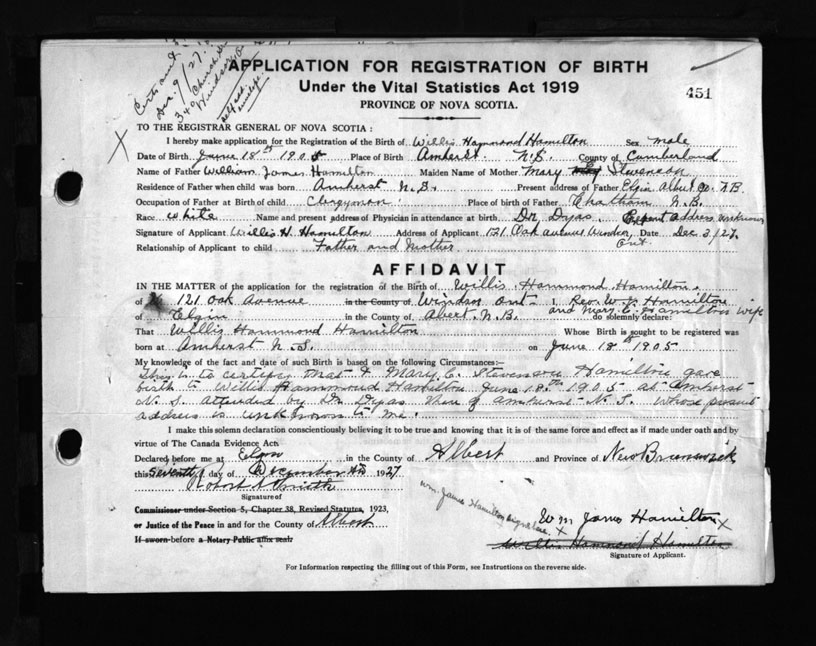 Dec. 9/27.
340 Church St
Windsor, O
self add.
envelope
APPLICATION FOR REGISTRATION OF BIRTH
Under the Vital Statistics Act 1919
PROVINCE OF NOVA SCOTIA.
451
TO THE REGISTRAR GENERAL OF NOVA SCOTIA:
I hereby make application for the Registration of the Birth of Willis Hammond Hamilton Sex male
Date of Birth June 18th 1905 Place of Birth Amherst. N.S. County of Cumberland
Name of Father William James Hamilton Maiden Name of Mother Mary Stevenson
Residence of Father when child was born Amherst N.S. Present address of Father Elgin Albert Co. N.B.
Occupation of Father at Birth of child Clergyman. Place of birth of Father Chatham N.B.
Race white Name and present address of Physician in attendance at birth Dr. Dyas. address unknown
Signature of Applicant Willis H. Hamilton Address of Applicant 121 Oak avenue Windsor, Ont Date Dec 3/27.
Relationship of Applicant to child Father and Mother
AFFIDAVIT
IN THE MATTER of the application for the registration of the Birth of Willis Hammond Hamilton.
of 121 Oak Avenue in the County of Windsor Ont. I, Rev. W. J. Hamilton
and Mary C. Hamilton wife
of Elgin in the County of Abert. N.B. do solemnly declare:
That Willis Hammond Hamilton Whose Birth is sought to be registered was
born at Amherst N.S. on June 18th 1905
My knowledge of the fact and date of such Birth is based on the following Circumstances:—
This is to certify that I Mary C. Stevenson Hamilton gave
birth to Willis Hammond Hamilton June 18th 1905 at Amherst
N.S. attended by Dr. Dyas then of Amherst N.S. whose present
address is unknown to me.
I make this solemn declaration conscientiously believing it to be true and knowing that it is of the same force and effect as if made under oath and by
virtue of The Canada Evidence Act.
Declared before me at Elgin in the County of Albert and Province of New Brunswick
this Seventh day of December AD 1927
Robert Smith
Signature of
Commissioner under Section 5, Chapter 38, Revised Statutes, 1923,
or Justice of the Peace in and for the County of Albert
If sworn before a Notary Public affix seal.
Wm. James Hamilton signature X
Wm James Hamilton X
Willis Hammond Hamilton
Signature of Applicant.
For Information respecting the filling out of this Form, see Instructions on the reverse side.